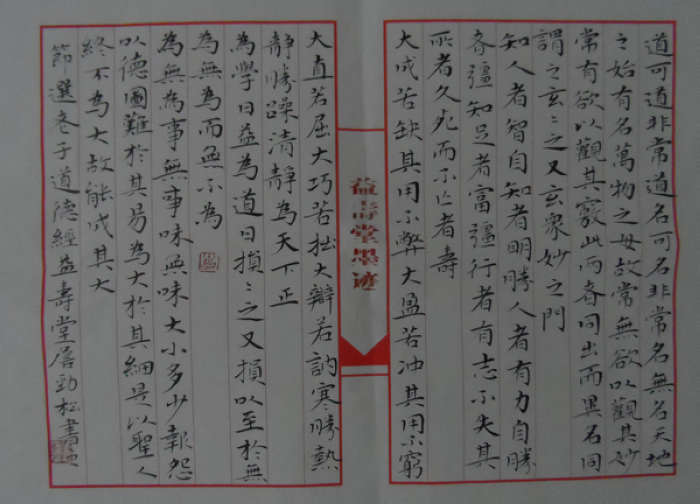 道可道非常道名可名非常名無名天地
之始有名萬物之母故常無欲以觀其妙
常有欲以觀其竅此兩者同出而異名同
謂之玄玄之又玄衆妙之門
知人者智自知者明勝人者有力自勝
者彊知足者富彊行者有志不失其
所者久死而不亡者壽
大成若缺其用不弊大盈若沖其用不窮
益壽堂墨迹
大直若屈大巧若拙大辯若訥寒勝熱
靜勝躁清靜為天下正
為學日益為道日損損之又損以至於無
為無為而無不為
為無為事無事味無味大小多少報怨
以德圖難於其易為大於其細是以聖人
終不為大故能成其大
節選老子道德經益壽堂居勁松書